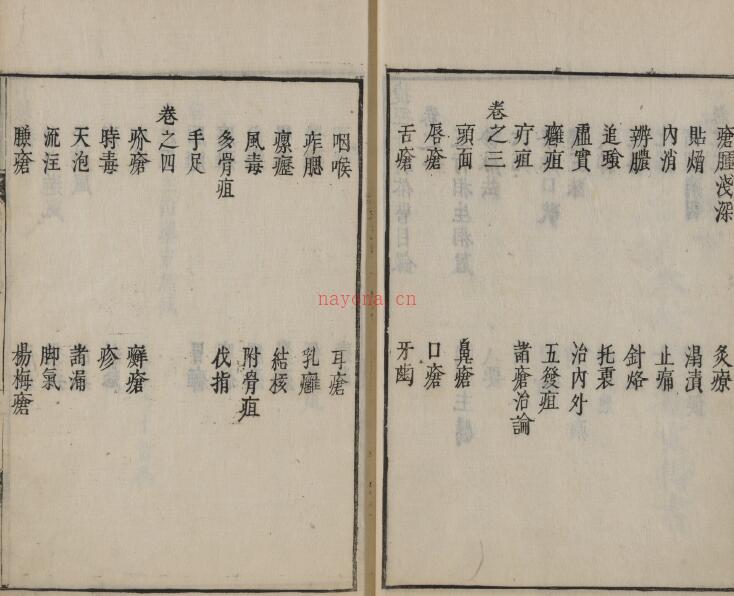 瘡腫淺深 灸療
貼熁 溻漬
內消 止痛
辨膿 針烙
追蝕 托裏
虛實 治內外
癰疽 五發疽
疔疽 諸瘡治論
卷之三
頭面 鼻瘡
唇瘡 口瘡
舌瘡 牙齒
咽喉 耳瘡
痄腮 乳癰
瘰癧 結核
風毒 附骨疽
多骨疽 伐指
手足
卷之四
疥瘡 癬瘡
時毒 疹
天泡 諸漏
流注 脚氣
臁瘡 楊梅瘡
nayona.cn